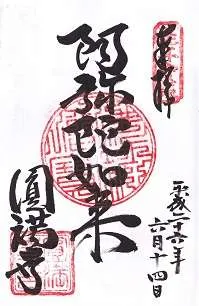 奉拝
平成二十六年
六月十四日
阿弥陀如来
圓満寺